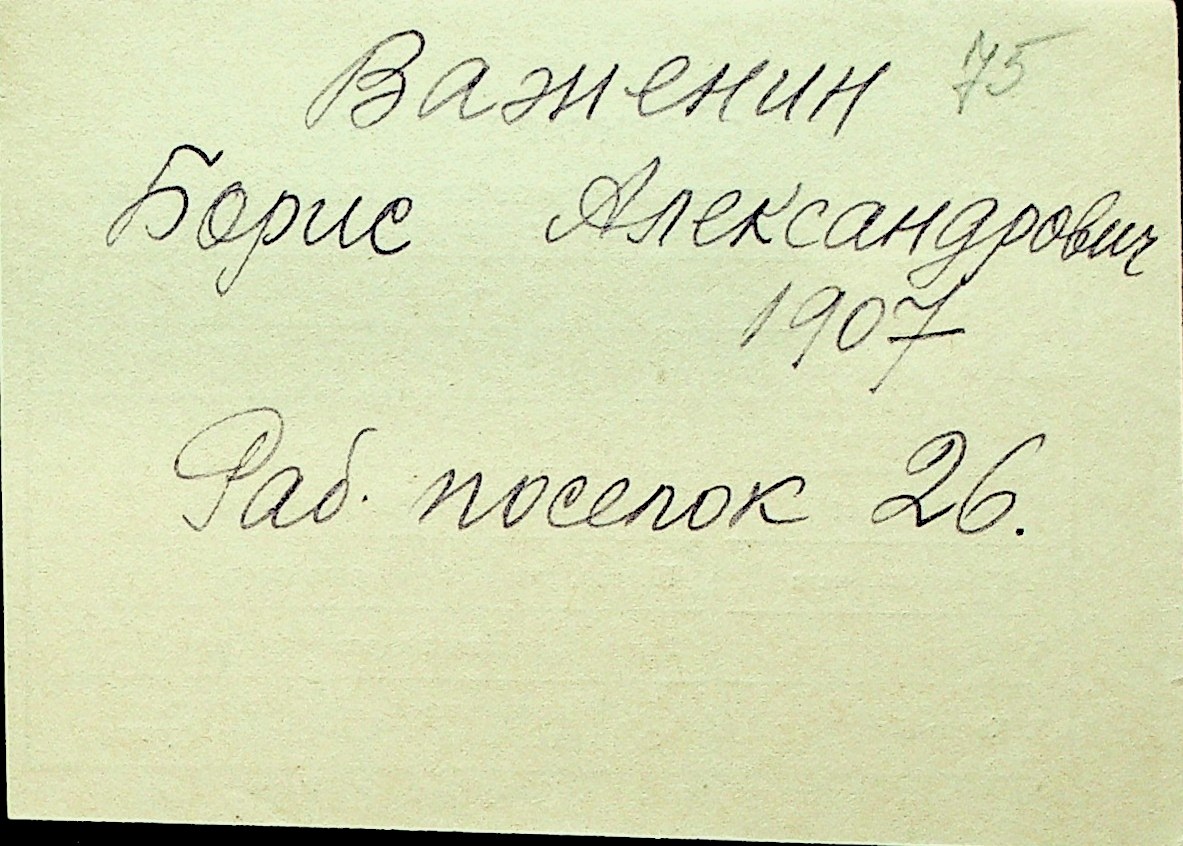 Важенин 75
Борис Александрович
1907
Раб. поселок 26.